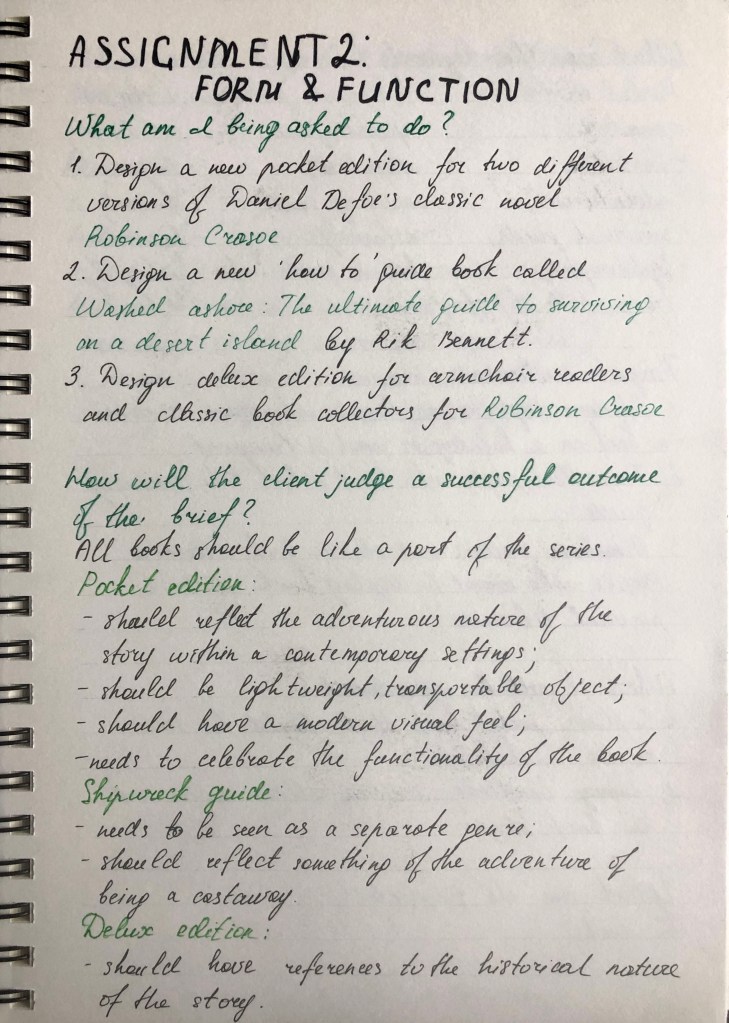 ASSIGNMENT 2:
FORM & FUNCTION
What am I being asked to do?
1. Design a new pocket edition for two different
versions of Daniel Defoe's classic novel
Robinson Crasoe
2. Design a new 'how to' guide book called
Washed ashore: The ultimate guide to surviving
on a desert island by Rik Bennett.
3. Design delux edition for armchair readers
and classic book collectors for Robinson Crasoe
How will the client judge a successful outcome
of the brief?
All books should be like a part of the series.
Pocket edition:
- should reflect the adventurous nature of the
story within a contemporary settings;
- should be lightweight, transportable object;
- should have a modern visual feel;
- needs to celebrate the functionality of the book.
Shipwreck guide:
- needs to be seen as a separate genre;
- should reflect something of the adventure of
being a castaway.
Delux edition:
- should have references to the historical nature
of the story.